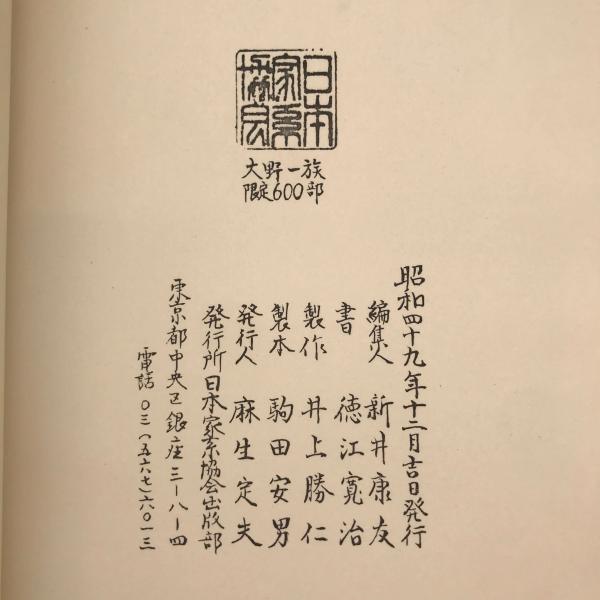 日本
家系
協会
大野一族
限定600部
昭和四十九年十二月吉日発行
編集人 新井康友
書 徳江寛治
製作 井上勝仁
製本 駒田安男
発行人 麻生定夫
発行所 日本家系協会出版部
東京都中央区銀座三-八-四
電話 〇三(五六七)六〇一三